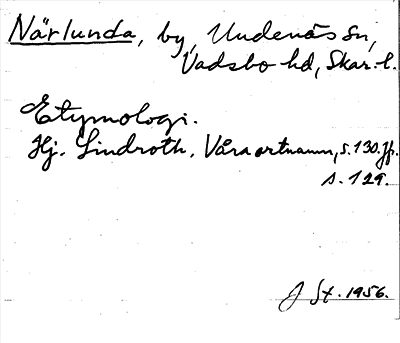 Närlunda, by, Undenäs sn,
Vadsbo hd, Skar. l.
Etymologi.
Hj. Lindroth, Våra ortnamn, s. 130 ff.
s. 129.
J St. 1956.